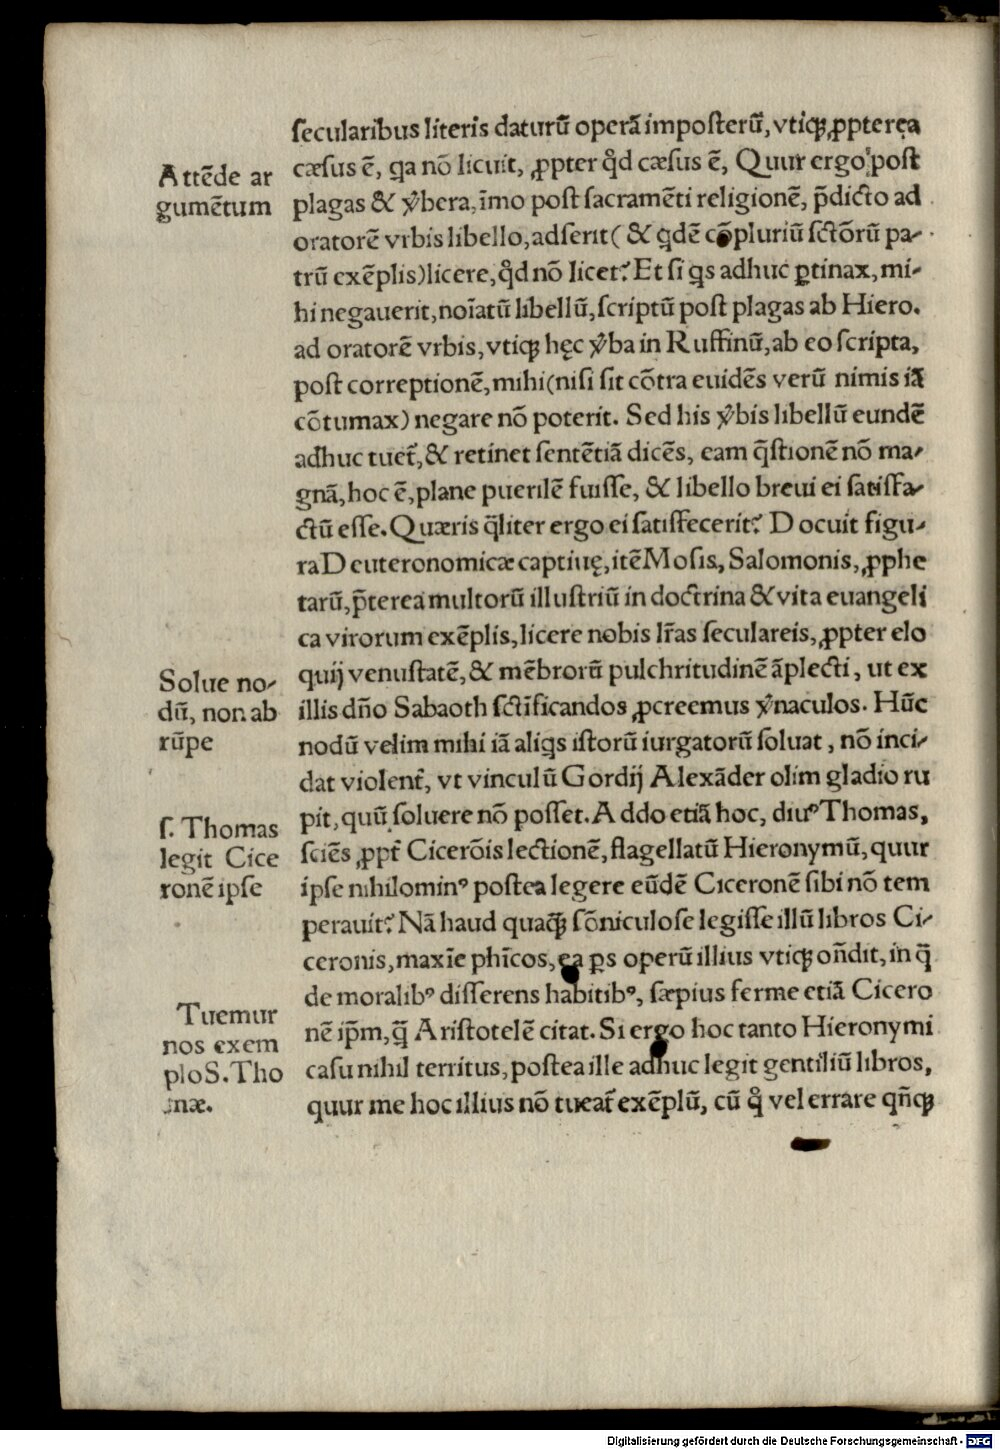 secularibus literis daturū operā imposterū, vtiqꝫ ꝓpterea
cæsus ē, qa nō licuit, ꝓpter qd cæsus ē, Quur ergo post
plagas & ṽbera, īmo post sacramēti religionē, p̄dicto ad
oratorē vrbis libello, adserit( & qdē cōpluriū sctōrū pa-
trū exēplis)licere, qd nō licet? Et si qs adhuc ꝑtinax, mi-
hi negauerit, noīatū libellū, scriptū post plagas ab Hiero.
ad oratorē vrbis, vtiqꝫ hęc ṽba in Ruffinū, ab eo scripta,
post correptionē, mihi(nisi sit cōtra euidēs verū nimis iā
cōtumax) negare nō poterit. Sed his ṽbis libellū eundē
adhuc tuet̃, & retinet sentētiā dicēs, eam q̄stionē nō ma-
gnā, hoc ē, plane puerilē fuisse, & libello breui ei satisfa-
ctū esse. Quæris q̄liter ergo ei satisfecerit? Docuit figu-
ra Deuteronomicæ captiuę, itē Mosis, Salomonis, ꝓphe
tarū, p̄terea multorū illustriū in doctrina & vita euangeli
ca virorum exēplis, licere nobis lr̄as seculareis, ꝓpter elo
quij venustatē, & mēbrorū pulchritudinē āplecti, ut ex
illis dn̄o Sabaoth sctīficandos ꝓcreemus ṽnaculos. Hūc
nodū velim mihi iā aliqs istorū iurgatorū soluat, nō inci-
dat violent̃, vt vinculū Gordij Alexāder olim gladio ru
pit, quū soluere nō posset. Addo etiā hoc, diuꝰ Thomas,
sciēs ꝓpt̃ Cicerōis lectionē, flagellatū Hieronymū, quur
ipse nihilominꝰ postea legere eūdē Ciceronē sibi nō tem
perauit? Nā haud quaqꝫ sōniculose legisse illū libros Ci-
ceronis, maxīe phīcos, ea ꝑs operū illius vtiqꝫ on̄dit, in q̄
de moralibꝰ disserens habitibꝰ, sæpius ferme etiā Cicero
nē ip̄m, q̄ Aristotelē citat. Si ergo hoc tanto Hieronymi
casu nihil territus, postea ille adhuc legit gentiliū libros,
quur me hoc illius nō tueat̃ exēplū, cū q̊ vel errare qn̄qꝫ
Attēde ar
gumētum
Solue no-
dū, non ab
rūpe
s. Thomas
legit Cice
ronē ipse
Tuemur
nos exem
plo S. Tho
mæ.
Digitalisierung gefördert durch die Deutsche Forschungsgemeinschaft - DFG